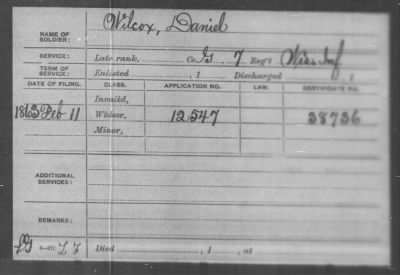 Wilcox, Daniel
NAME OF SOLDIER:
SERVICE: Late rank, Co. G, 7 Reg't Wis. Inf
TERM OF SERVICE: Enlisted , 1 Discharged , 1
DATE OF FILING. CLASS. APPLICATION NO. LAW. CERTIFICATE NO.
Invalid,
1863 Feb 11 Widow, 12547 38736
Minor,
ADDITIONAL SERVICES:
REMARKS:
Died , 1 , at